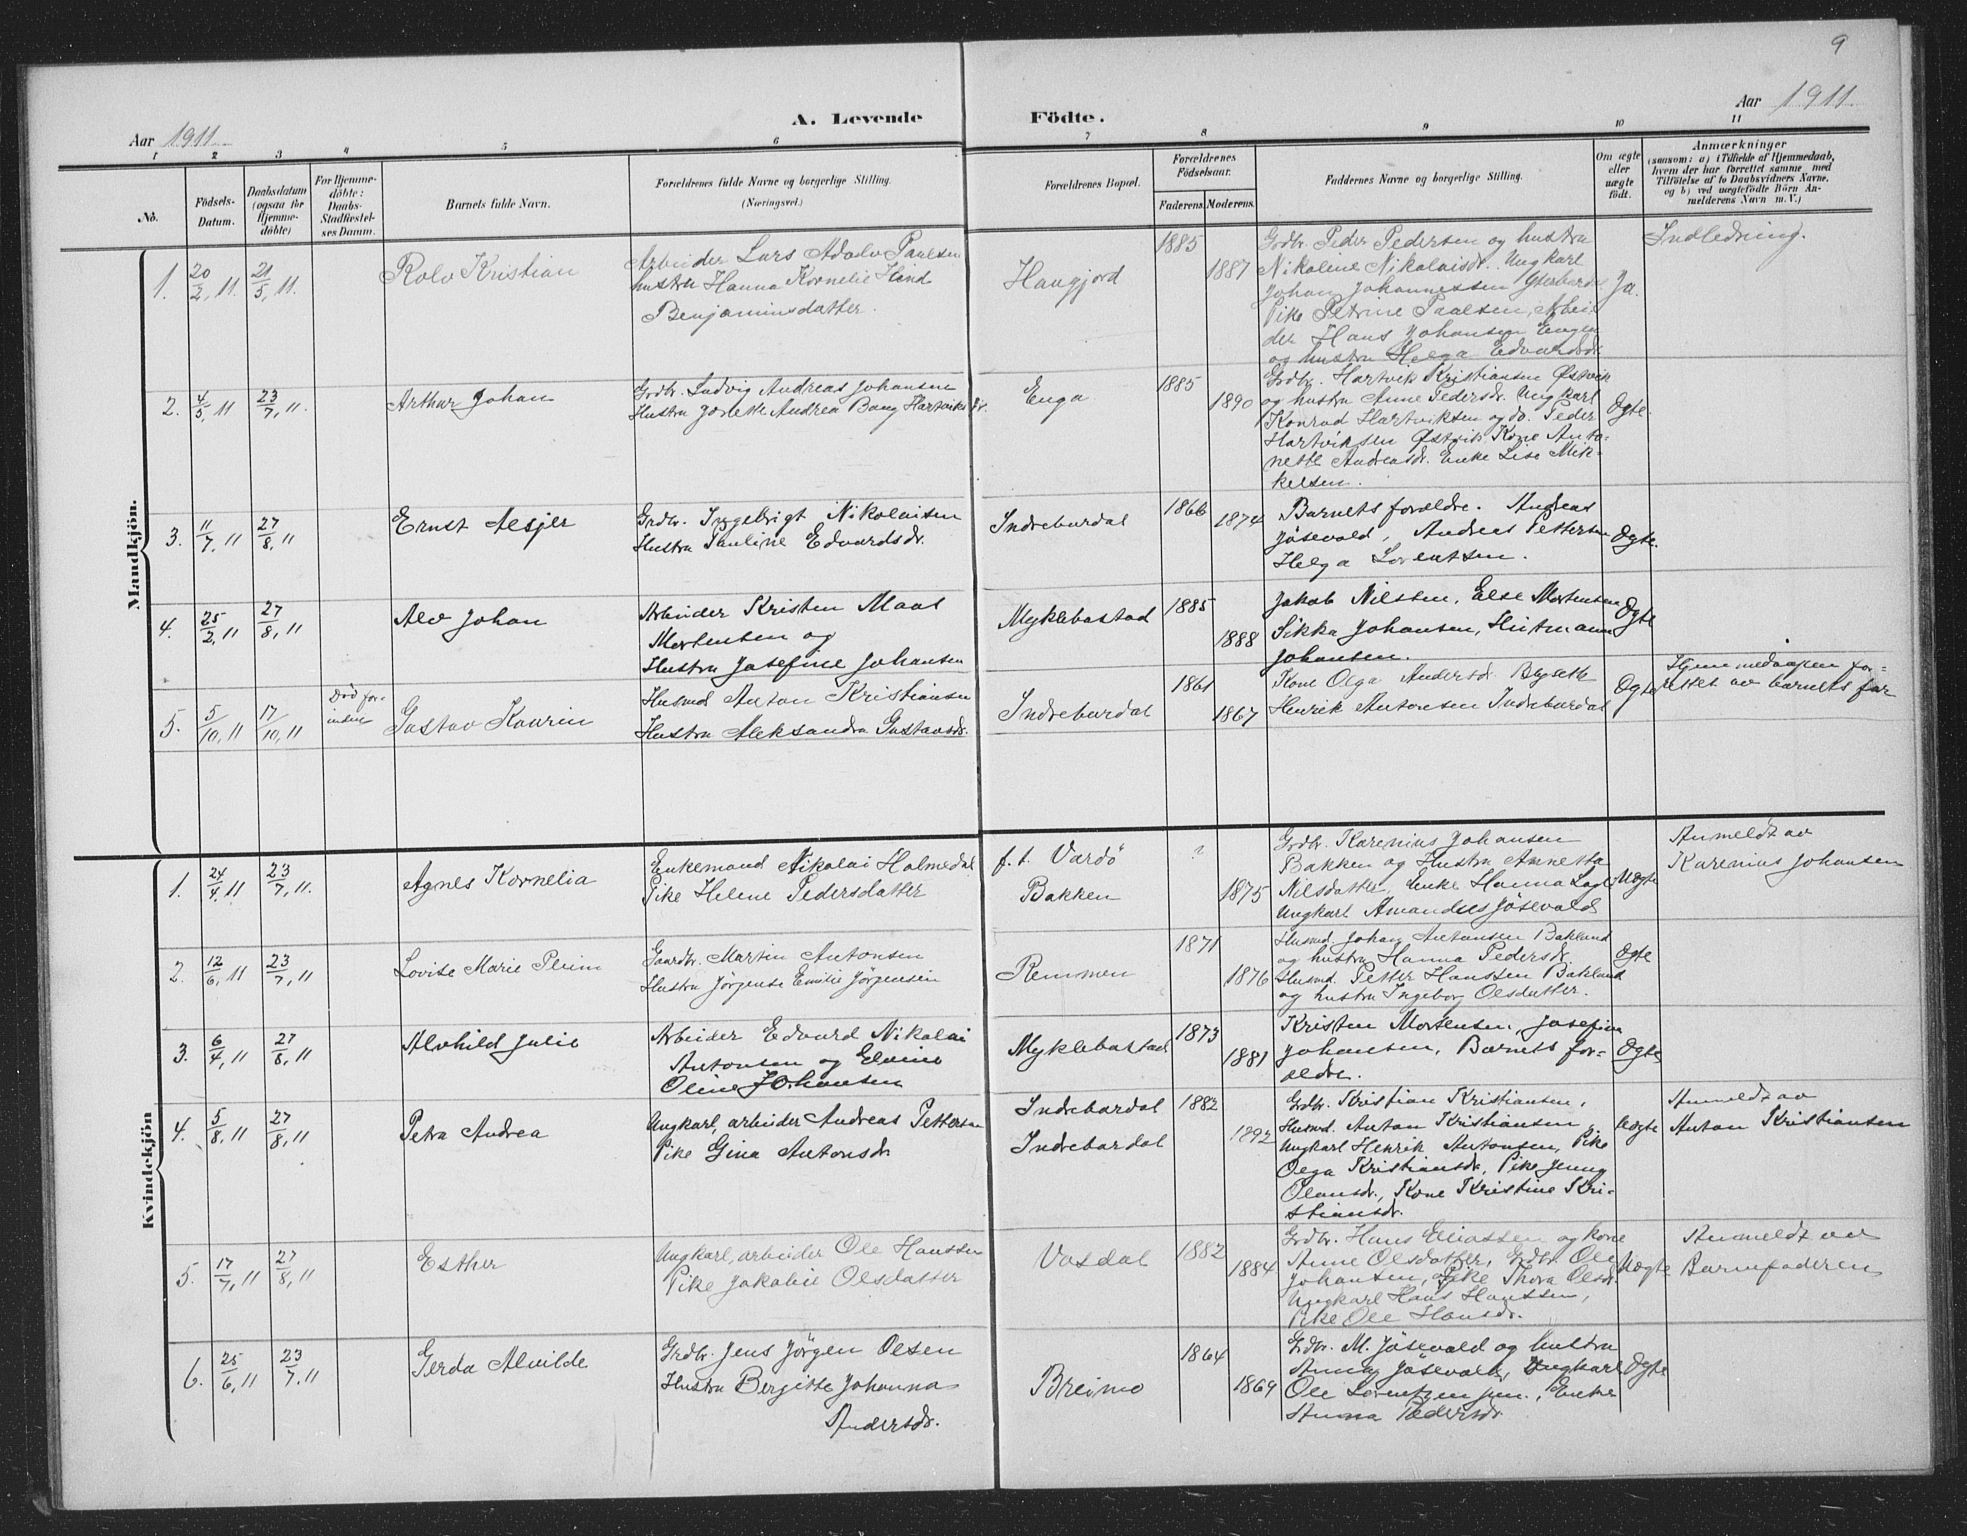 9
Aar 1911
A. Levende Födte.
Aar 1911
1 2 3 4 5 6 7 8 9 10 11
No.
Födsels-
Datum.
Daabsdatum
(ogsaa for
Hjemme-
döbte)
For Hjemme-
döbte:
Daabs-
Stadfæstel-
ses Datum.
Barnets fulde Navn.
Forældrenes fulde Navne og borgerlige Stilling.
(Næringsvei.)
Forældrenes Bopæl.
Forældrenes
Födselsaar.
Faderens. Moderens.
Faddernes Navne og borgerlige Stilling.
Om ægte
eller
uægte
födt.
Anmærkninger
(saasom: a) i Tilfælde af Hjemmedaab,
hvem der har forrettet samme, med
Tilföielse af to Daabsvidners Navne,
og b) ved uægtefödte Börn An-
melderens Navn m. V.)
Mandkjön.
1. 20/2, 11. 21/5, 11.
Rolv Kristian
Arbeider Lars Adolv Paulsen
hustru Hanna Kornelie Hind
Benjaminsdatter.
Haugjord
1885
1887
Grdbr. Peder Pedersen og hustru
Nikoline Nikolaisdr. Ungkarl
Johan Johannessen Ytterbardal
Pike Petrine Paulsen, Arbei
der Hans Johansen Engen
og hustru Helga Edvardsdr.
Ja.
Indledning.
2. 4/5, 11 23/7, 11.
Arthur Johan
Grdbr. Ludvig Andreas Johansen
Hustru Josette Andrea Bang Hartviksdr.
Enga
1885
1890
Grdbr. Hartvik Kristiansen Østvik
og hustru Anne Pedersdr. Ungkarl
Konrad Hartviksen og do. Peder
Hartviksen Østvik, Kone Anto-
nette Andreasdr. Enke Lise Mik-
kelsen.
Ægte.
3. 11/7, 11 27/8, 11
Ernst Aesjer
Grdbr. Ingebrigt Nikolaisen
Hustru Pauline Edvardsdr.
Indrebardal
1866
1874
Barnets forældre. Andreas
Jösevold, Andreas Pettersen
Helga Lorentsen.
Ægte.
4. 25/2, 11 27/8, 11
Alv Johan
Arbeider Kristen Maas
Mortensen og
Hustru Josefine Johansen
Myklebostad
1885
1888
Jakob Nilssen, Else Mortensen
Sikka Johansen, Hutmann
Johansen.
Ægte
5. 5/10, 11 17/10, 11
Död for-
inden
Gustav Kaurin
Husmd Anton Kristiansen
Hustru Aleksandra Gustavsdr.
Indrebardal
1861
1867
Kone Olga Andersdr.
Henrik Antonsen Indrebardal
Ægte
Hjemmedaapen for-
rettet av barnets far
Kvindekjön
1. 24/4, 11 23/7, 11.
Agnes Kornelia
Enkemand Nikolai Holmedal
Pike Helene Pedersdatter
f. t. Vardö
Bakken
?
1875
Grdbr. Karenius Johansen
Bakken og Hustru Annetta
Nilsdatter, Enke Hanna
Ungkarl Amandus Jösevold
Uægte
Anmeldt av
Karenius Johansen
2. 12/6, 11 23/7, 11
Lovise Marie Prim
Gaardbr. Martin Antonsen
Hustru Jörgense Emilie Jörgensen
Remmen
1871
1876
Husmd. Johan Antonsen Bakland
og hustru Hanna Pedersdr.
Husmd. Petter Hanssen Bakland
og hustru Ingeborg Olsdatter.
Ægte
3. 6/4, 11 27/8, 11
Alvhild Julie
Arbeider Edvard Nikolai
Antonsen og Elvine
Oline Johansen
Myklebostad
1873
1881
Kristen Mortensen, Josefine
Johansen, Barnets for-
ældre.
Ægte
4. 5/8, 11 27/8, 11
Petra Andrea
Ungkarl, arbeider Andreas Pettersen
Pike Gina Antonsdr
Indrebardal
Indrebardal
1882
1892
Grdbr. Kristian Kristiansen,
Husmd. Anton Kristiansen
Ungkarl Henrik Antonsen, Pike
Olga Kristiansdr, Pike Jenny
Olansdr, Kone Kristine Kri-
stiansdr.
Uægte
Anmeldt av
Anton Kristiansen
5. 17/7, 11 27/8, 11
Esther
Ungkarl, arbeider Ole Hanssen
Pike Jakobie Olsdatter
Vasdal
1882
1884
Grdbr. Hans Eliassen og kone
Anne Olsdatter, Grdbr. Ole
Johansen, Pike Thora Olsdr.
Ungkarl Hans Hanssen,
Pike Ole Hansdr.
Uægte
Anmeldt av
Barnefaderen
6. 25/6, 11 23/7, 11
Gerda Alvilde
Grdbr. Jens Jörgen Olsen
Hustru Bergitte Johanna
Andersdr.
Breimo
1864
1869
Grdbr. M. Jösevold og hustru
Anna Jösevold, Ungkarl
Ole Lorentzensen, Enke
Anna Pedersdr
Ægte